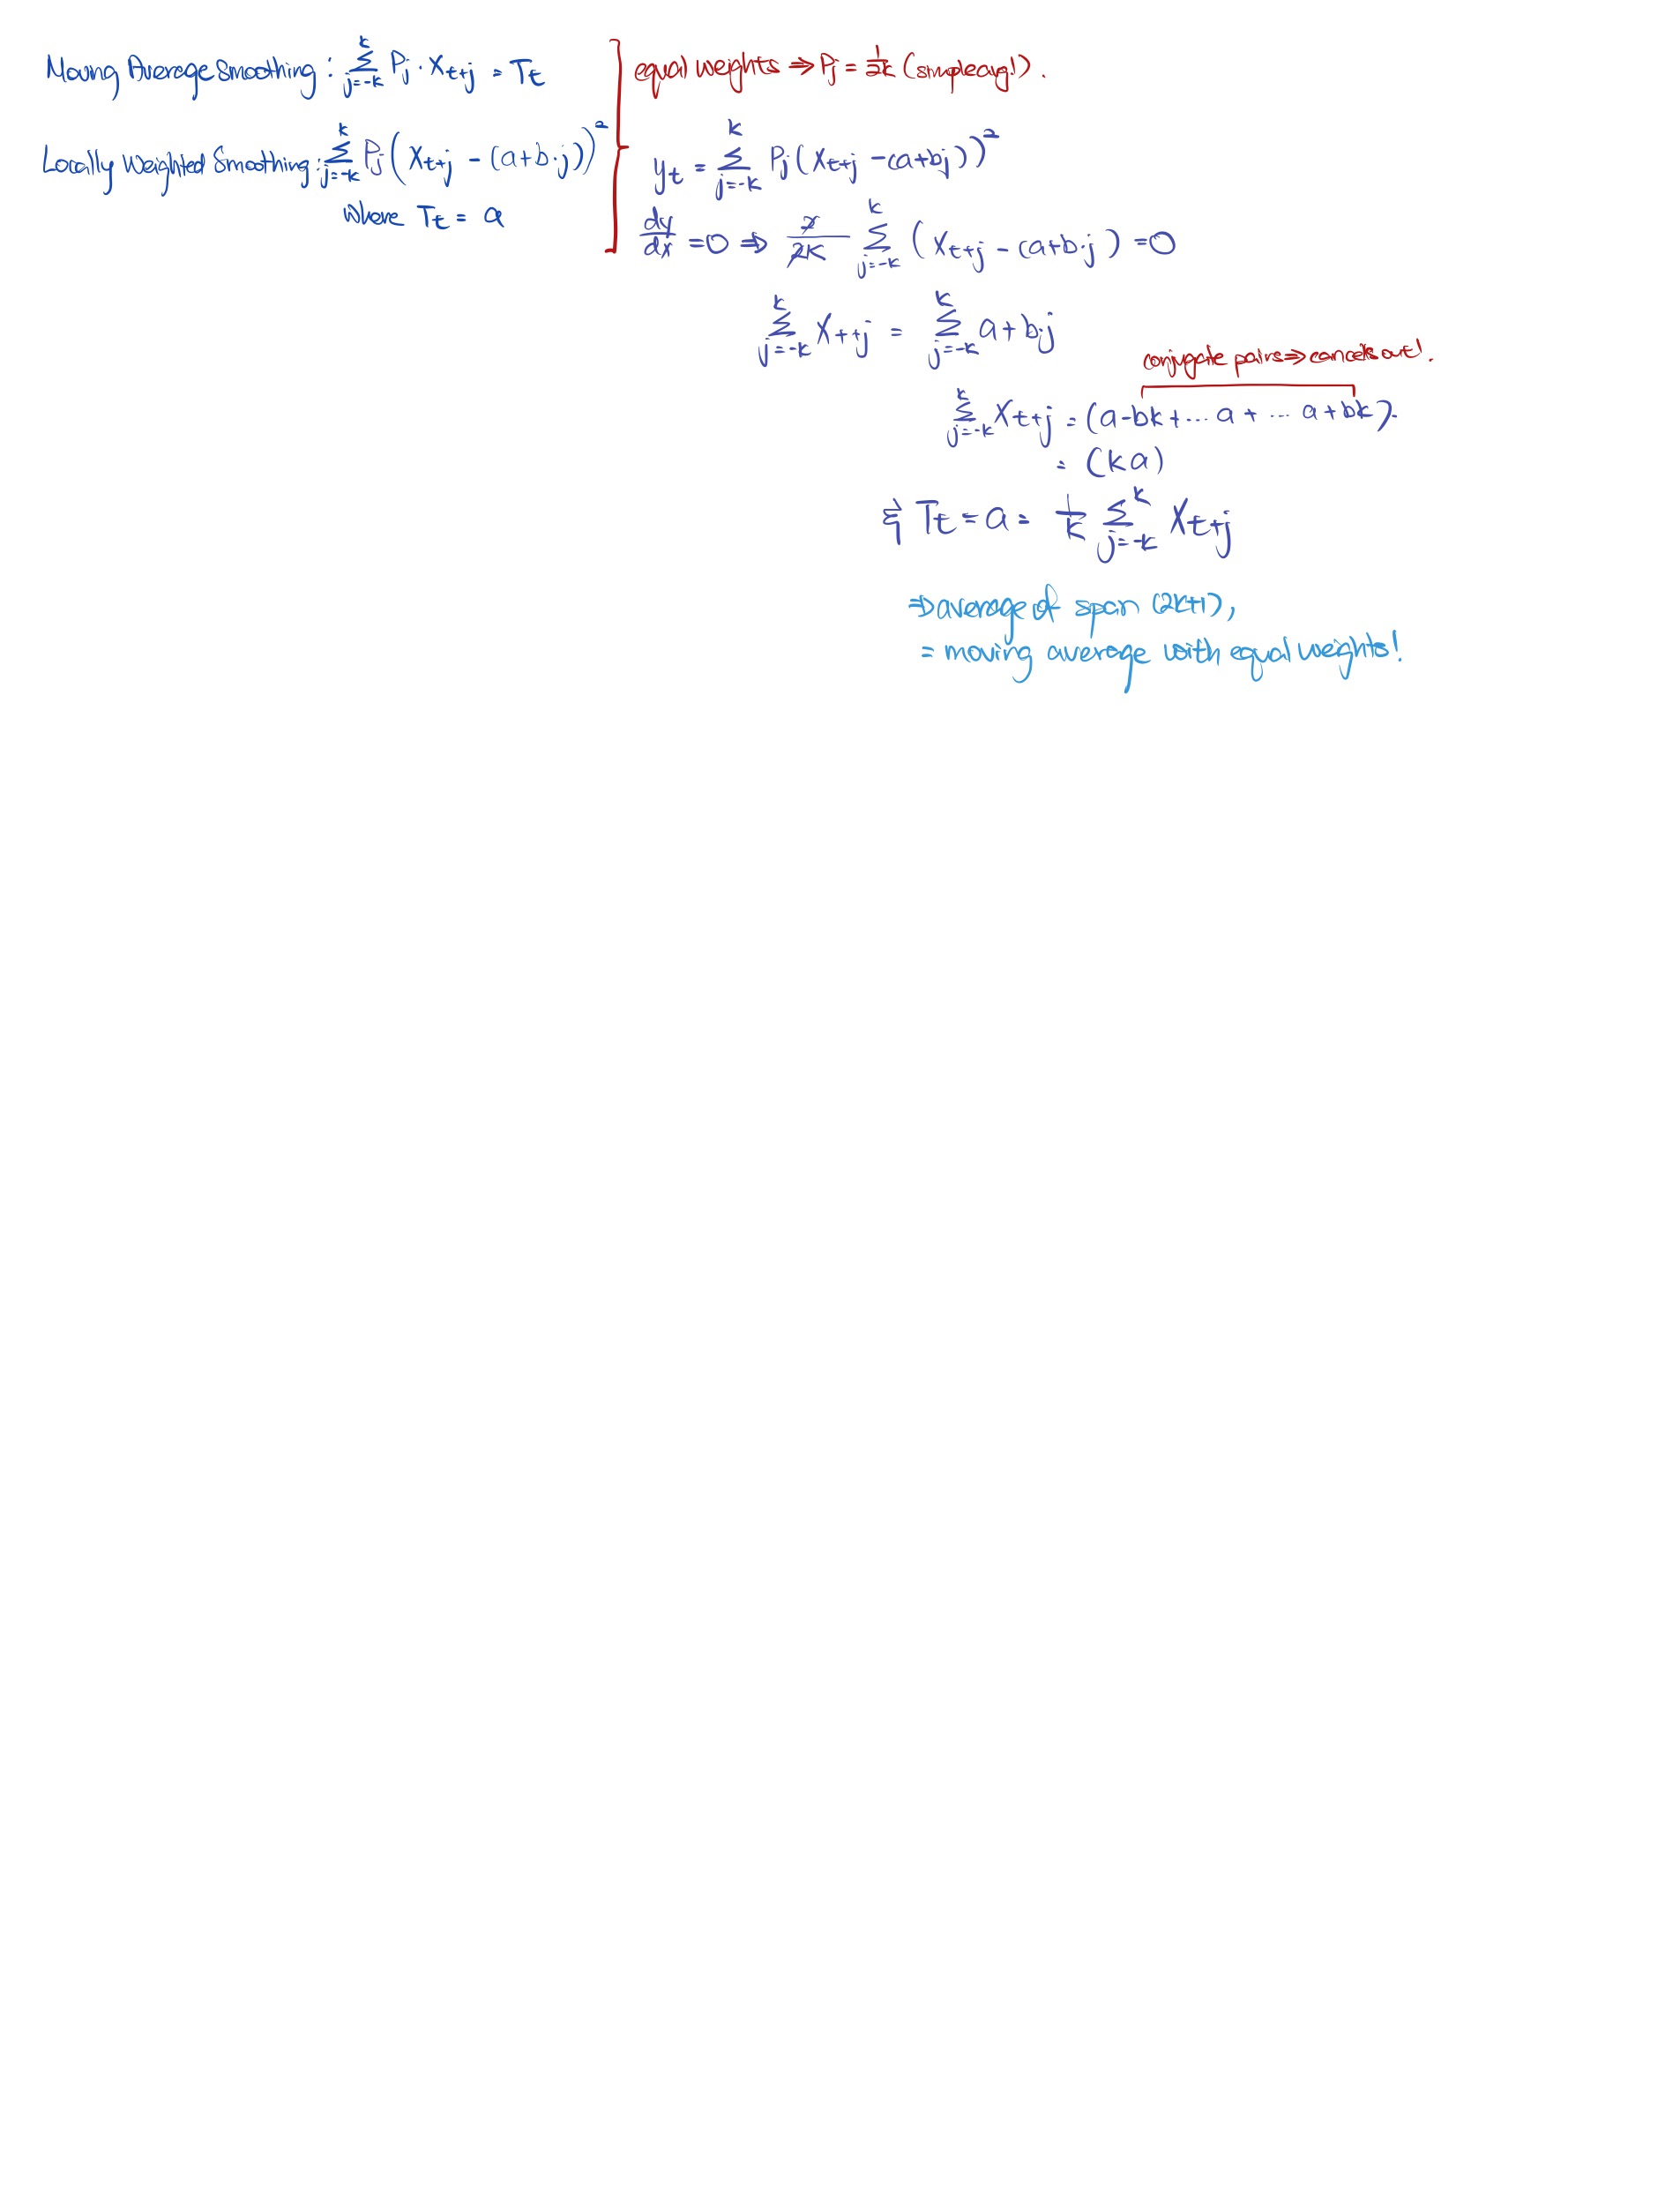 Moving Average Smoothing : \sum_{j=-k}^{k} P_j · X_{t+j} = T_t
Locally Weighted Smoothing : \sum_{j=-k}^{k} P_j (X_{t+j} - (a+b·j))^2
where T_t = a
equal weights ⇒ P_j = \frac{1}{2k} (simple avg!).
y_t = \sum_{j=-k}^{k} P_j (X_{t+j} - (a+bj))^2
\frac{dy}{dx} = 0 ⇒ \frac{2}{2k} \sum_{j=-k}^{k} (X_{t+j} - (a+b·j) = 0
\sum_{j=-k}^{k} X_{t+j} = \sum_{j=-k}^{k} a+b·j
conjugate pairs ⇒ cancels out!.
\sum_{j=-k}^{k} X_{t+j} = (a-bk+... a + ... a+bk).
= (ka)
& T_t = a = \frac{1}{k} \sum_{j=-k}^{k} X_{t+j}
⇒ average of span (2k+1),
= moving average with equal weights!